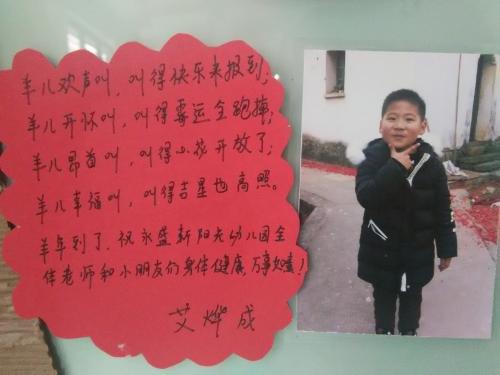 羊儿欢声叫，叫得快乐来报到；
羊儿开怀叫，叫得霉运全跑掉；
羊儿昂首叫，叫得小花开放了；
羊儿幸福叫，叫得吉星也高照。
羊年到了，祝永盛新阳光幼儿园全
体老师和小朋友们身体健康，万事如意！
艾烨成